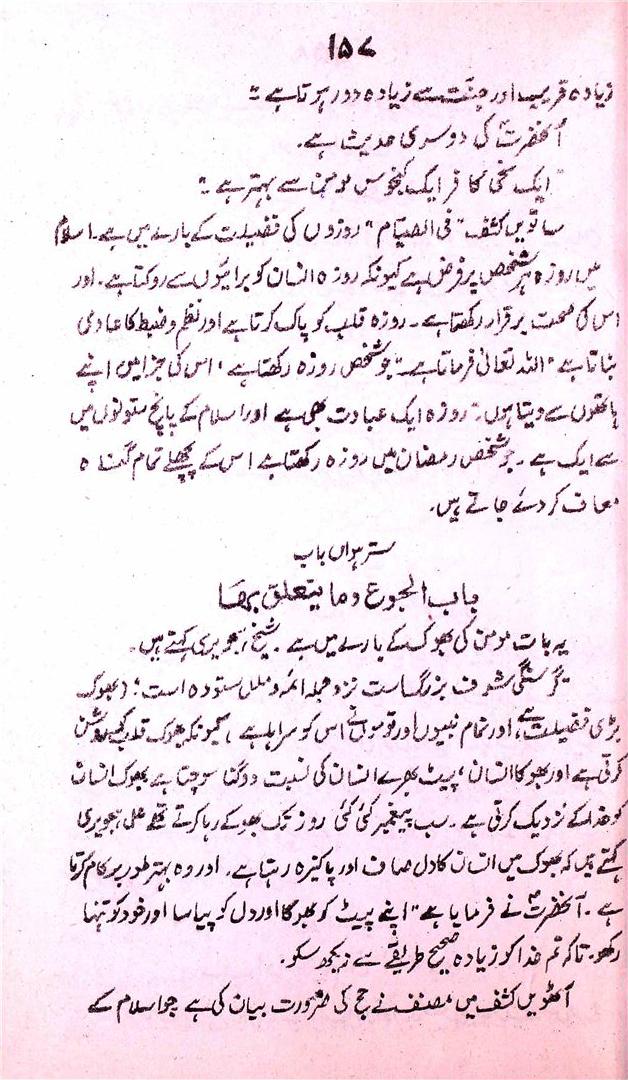 ۱۵۷
زیادہ قریب اور جنّت سے زیادہ دور ہوتا ہے"۔
آنحضرتؐ کی دوسری حدیث ہے۔
"ایک سخی کافر ایک کنجوس مومن سے بہتر ہے"۔
ساتویں کشف "فی الصیام" روزوں کی فضیلت کے بارے میں ہے۔ اسلام
میں روزہ ہر شخص پر فرض ہے کیونکہ روزہ انسان کو برائیوں سے روکتا ہے۔ اور
اس کی صحت برقرار رکھتا ہے۔ روزہ قلب کو پاک کرتا ہے اور نظم و ضبط کا عادی
بناتا ہے "اللہ تعالیٰ فرماتا ہے۔ "جو شخص روزہ رکھتا ہے، اس کی جزا میں اپنے
ہاتھوں سے دیتا ہوں۔" روزہ ایک عبادت بھی ہے اور اسلام کے پانچ ستونوں میں
سے ایک ہے۔ جو شخص رمضان میں روزہ رکھتا ہے اس کے پچھلے تمام گناہ
معاف کر دئے جاتے ہیں۔
سترہواں باب
باب الجوع وما یتعلق بہا
یہ بات مومن کی بھوک کے بارے میں ہے۔ شیخ ہجویری کہتے ہیں۔
"گرسنگی شرف بزرگ است نزد جملہ ائمہ و ملل ستودہ است: (بھوک
بڑی فضیلت ہے، اور تمام نبیوں اور قوموں نے اس کو سراہا ہے، کیونکہ بھوک قلب کو روشن
کرتی ہے اور بھوکا انسان، پیٹ بھرے انسان کی نسبت دوگنا سوچتا ہے بھوک انسان
کو خدا کے نزدیک کرتی ہے۔ سب پیغمبر کئی کئی روز تک بھوکے رہا کرتے تھے علی ہجویری
کہتے ہیں کہ بھوک میں انسان کا دل صاف اور پاکیزہ رہتا ہے۔ اور وہ بہتر طور پر کام کرتا
ہے۔ آنحضرتؐ نے فرمایا ہے "اپنے پیٹ کو بھوکا اور دل کو پیاسا اور خود کو تنہا
رکھو۔ تاکہ تم خدا کو زیادہ صحیح طریقے سے دیکھ سکو۔
آٹھویں کشف میں مصنف نے حج کی ضرورت بیان کی ہے جو اسلام کے